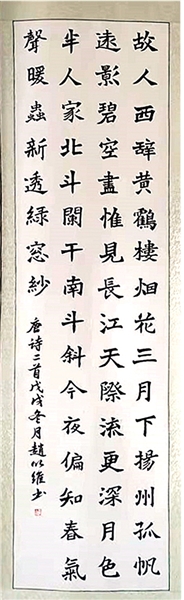 故人西辭黃鶴樓烟花三月下揚州孤帆
遠影碧空盡惟見長江天際流更深月色
半人家北斗闌干南斗斜今夜偏知春氣
聲暖蟲新透緑窓紗
唐诗二首戊戌冬月趙以維书